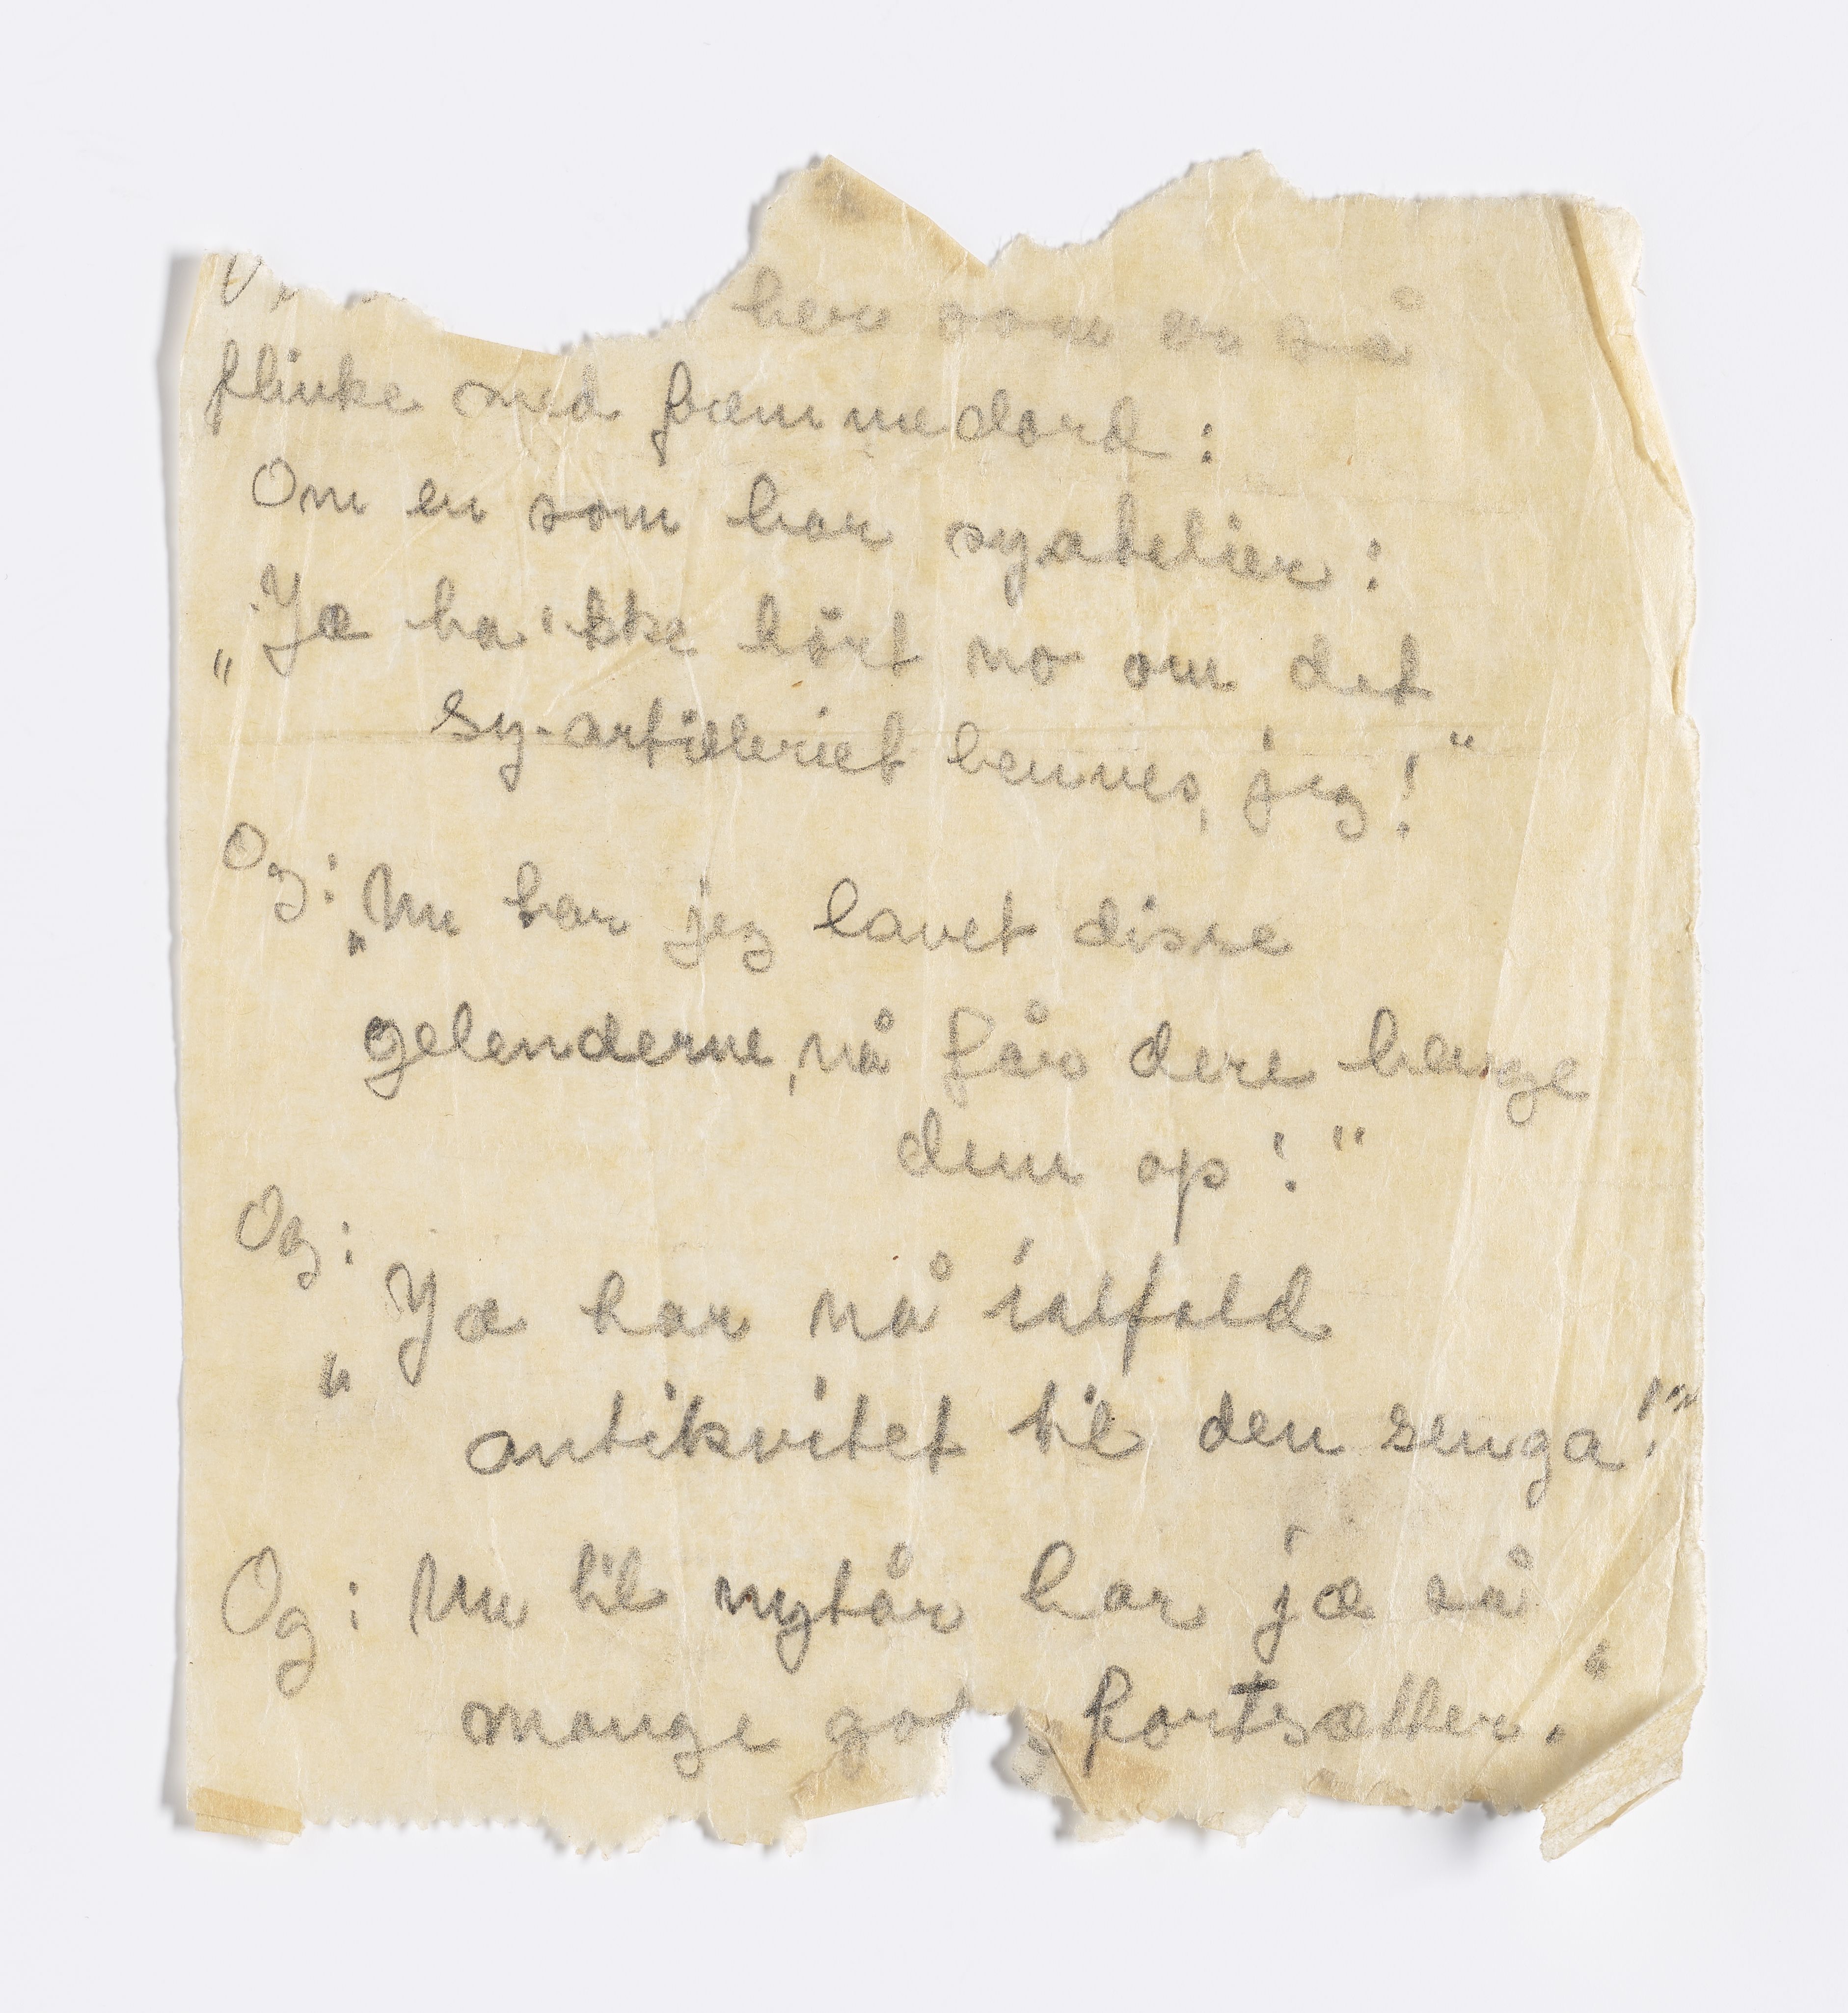 her som er så
flinke med fræmmedord:
Om en som har syatelier:
„Jæ ha'kke hört no om det
sy-artilleriet hennes, jeg!"
Og: „Nu har jeg lavet disse
gelenderne, nå får dere hænge
dem op!"
Og:
„Jæ har nå ialfald
antikvitet til den senga!"
Og: Nu til nytår har jæ så
mange fortsætter."